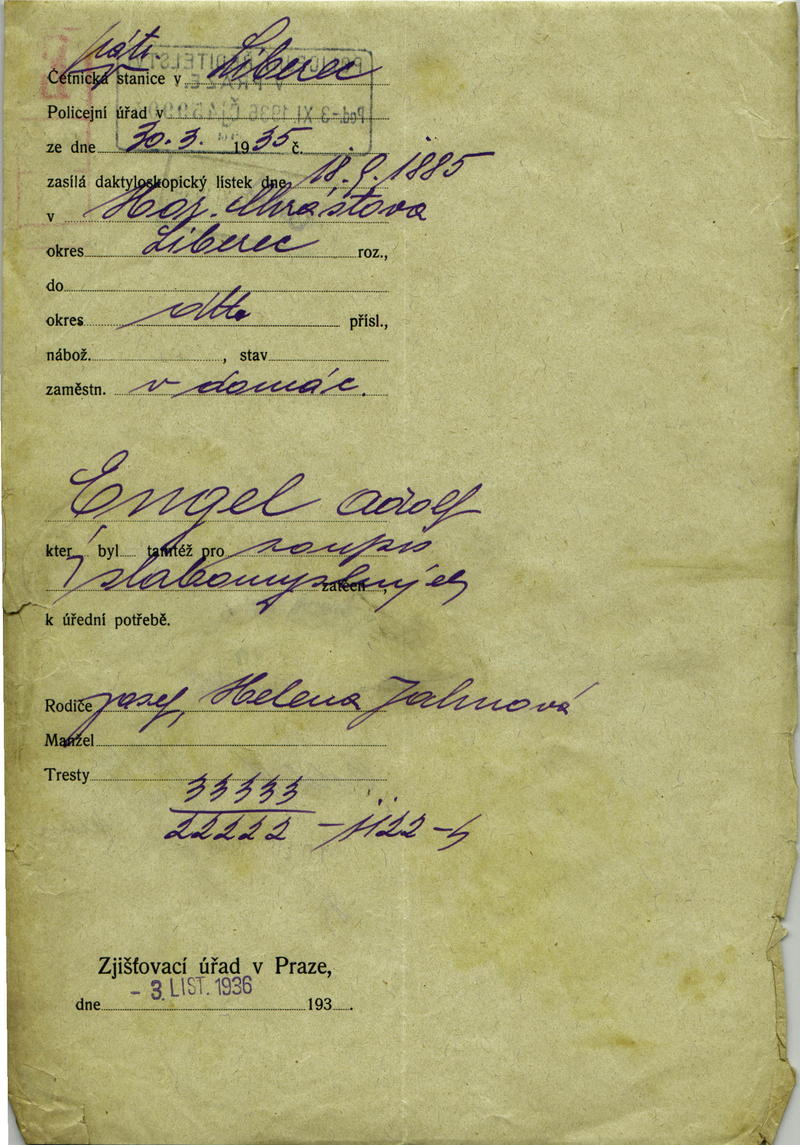 pátr.
Četnická stanice v Liberec
Policejní úřad v
ze dne 30.3. 1935 č.
zasílá daktyloskopický lístek dne 18.9.1885
v Hor.
okres Liberec roz.,
do
okres dtto přísl.,
nábož. , stav
zaměstn. v domác.
Engel Adolf
kter ý byl tamtéž pro soupis
slabomyslných zatčen ,
k úřední potřebě.
Rodiče Josef, Helena
Manžel
Tresty
33333
22222
Zjišťovací úřad v Praze,
- 3. LIST. 1936
dne 193 .